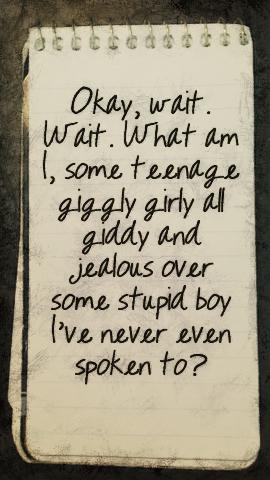 Okay, wait.
Wait. What am
I, some teenage
giggly girly all
giddy and
jealous over
some stupid boy
I've never even
spoken to?